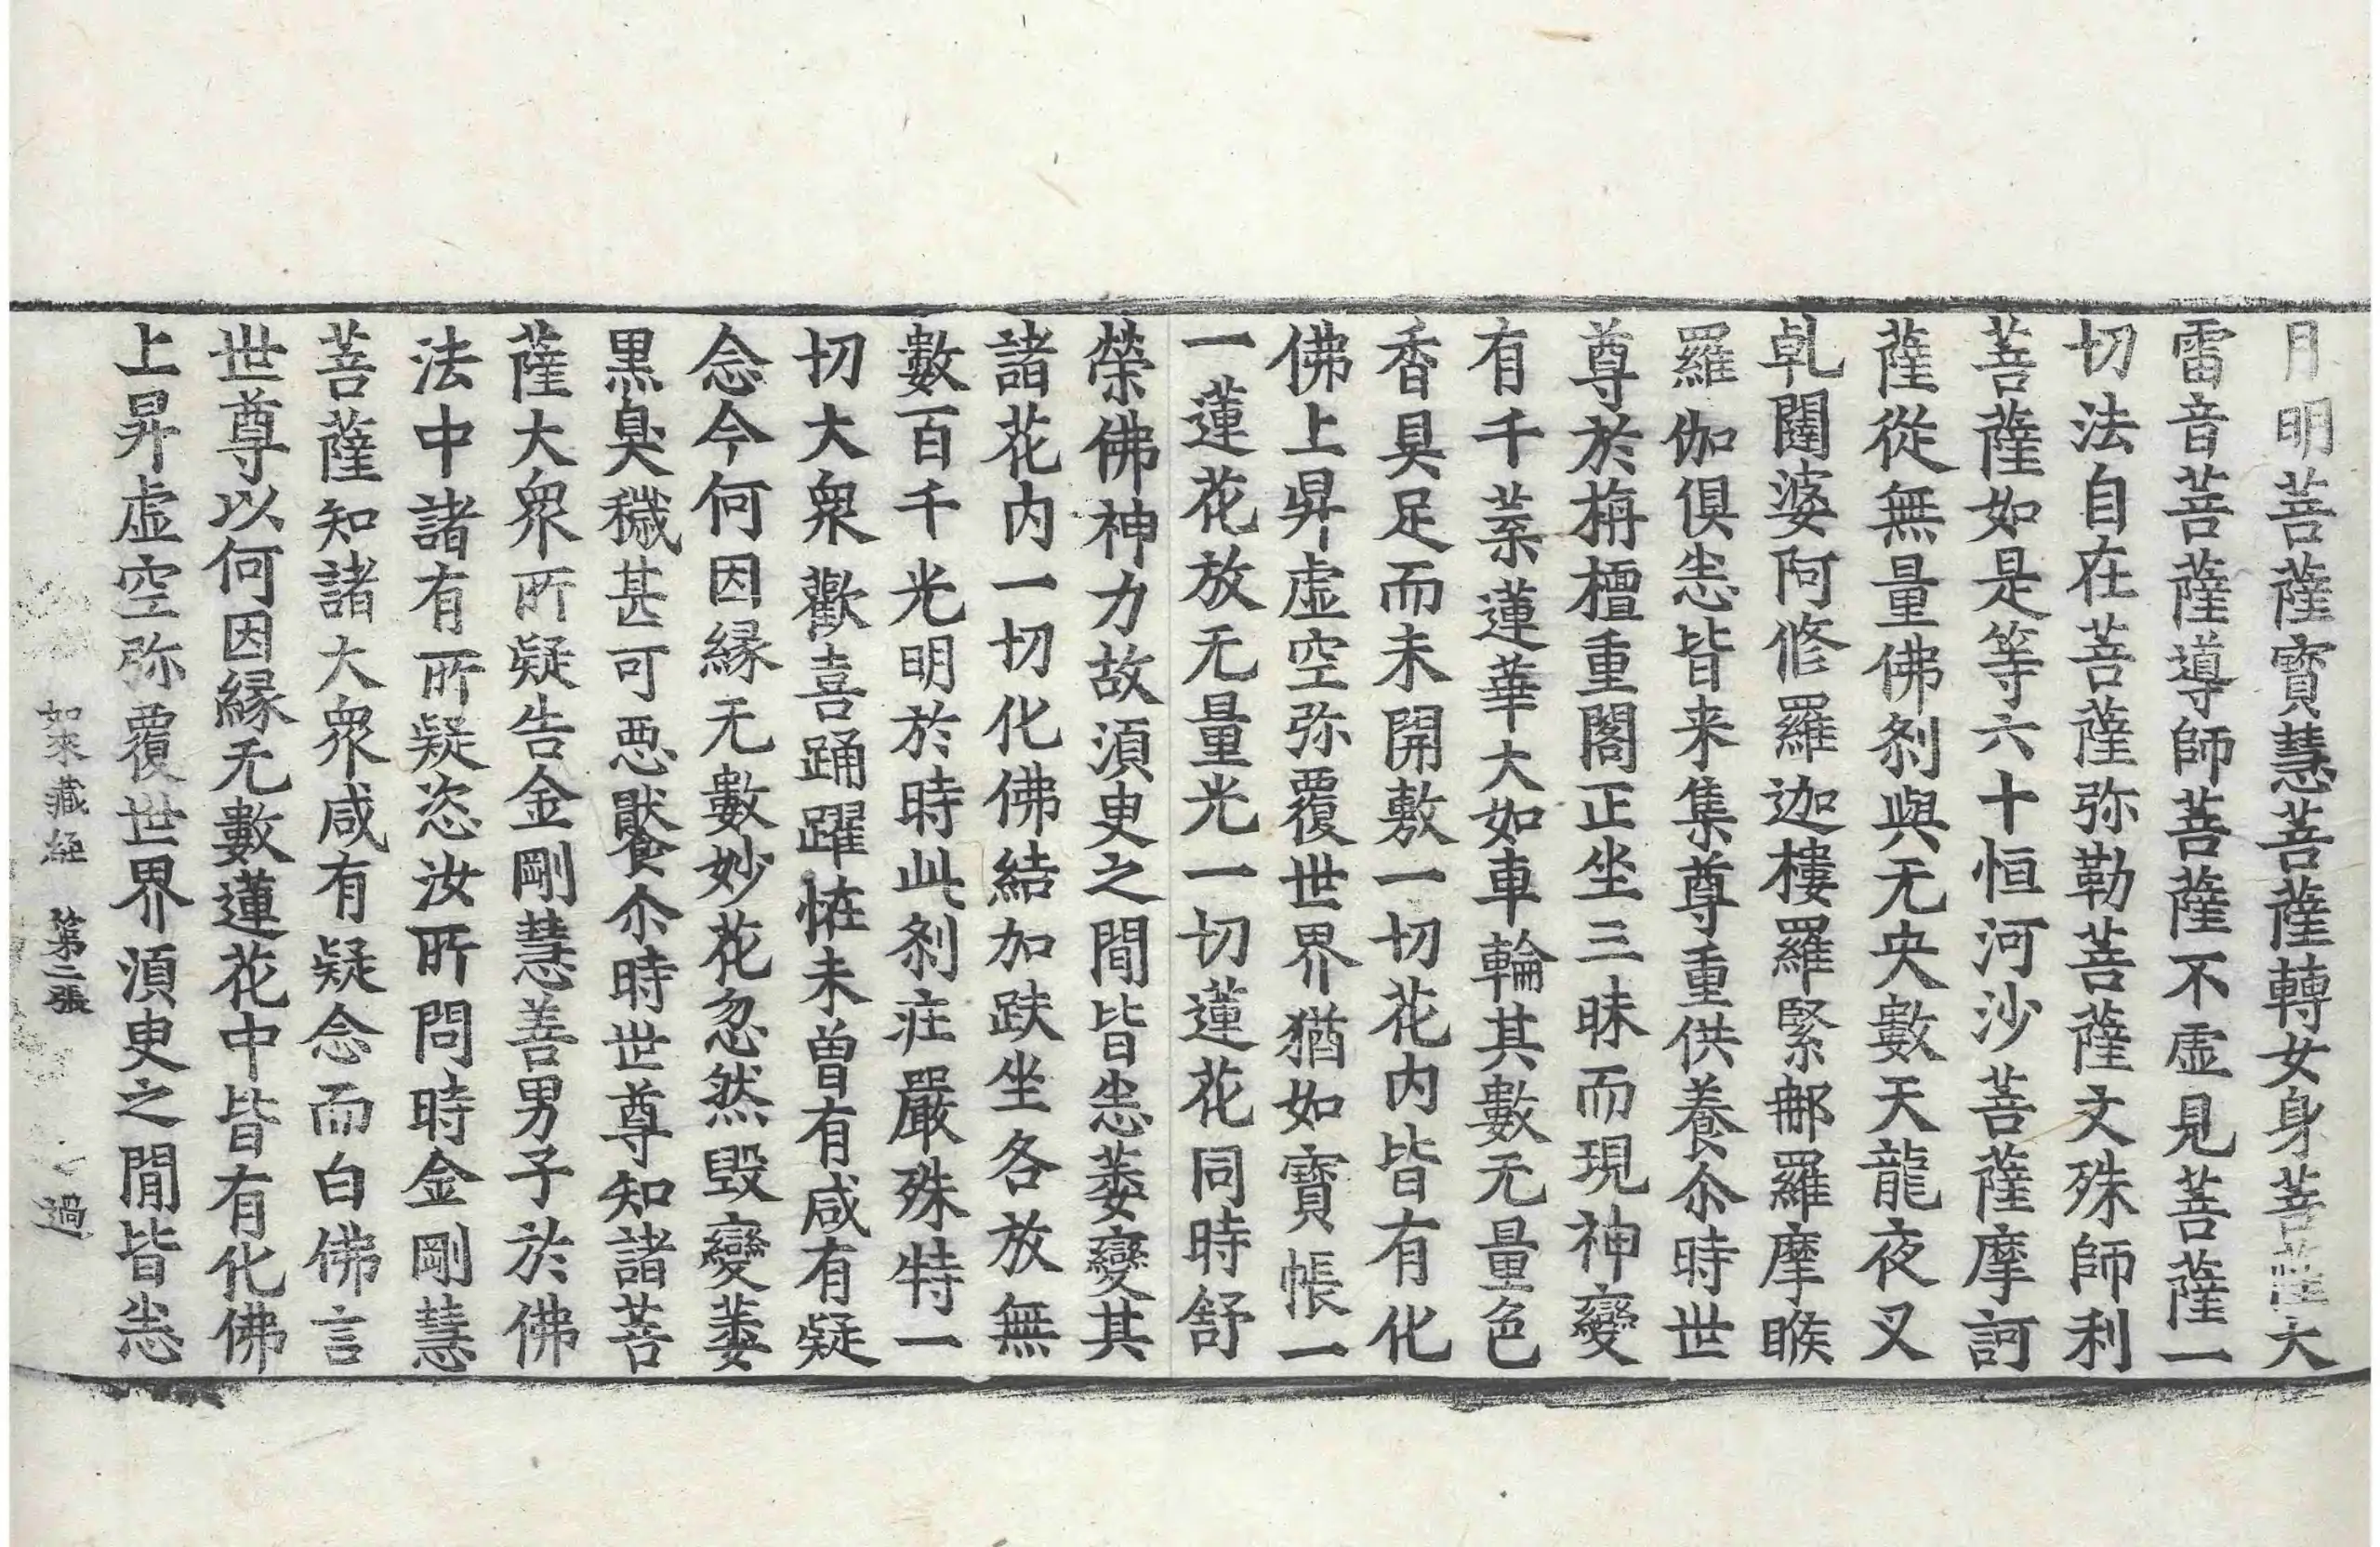 月明菩薩寶慧菩薩轉女身菩薩大
雷音菩薩導師菩薩不虛見菩薩一
切法自在菩薩弥勒菩薩文殊師利
菩薩如是等六十恒河沙菩薩摩訶
薩從無量佛刹與无央數天龍夜叉
乹闥婆阿修羅迦樓羅緊那羅摩睺
羅伽俱悉皆来集尊重供養尒時世
尊於栴檀重閣正坐三昧而現神變
有千葉蓮華大如車輪其數无量色
香具足而未開敷一切花内皆有化
佛上昇虛空弥覆世界猶如寶帳一
一蓮花放无量光一切蓮花同時舒
榮佛神力故須臾之閒皆悉萎變其
諸花内一切化佛結加趺坐各放無
數百千光明於時此刹疰嚴殊特一
切大衆歡喜踊躍恠未曽有咸有疑
念今何因緣无數妙花忽然毀變萎
黒臭穢甚可惡猒尒時世尊知諸菩
薩大衆所疑告金剛慧善男子於佛
法中諸有所疑恣汝所問時金剛慧
菩薩知諸大衆咸有疑念而白佛言
世尊以何因緣无數蓮花中皆有化佛
上昇虛空弥覆世界須臾之閒皆悉
如來藏經 第二張 過